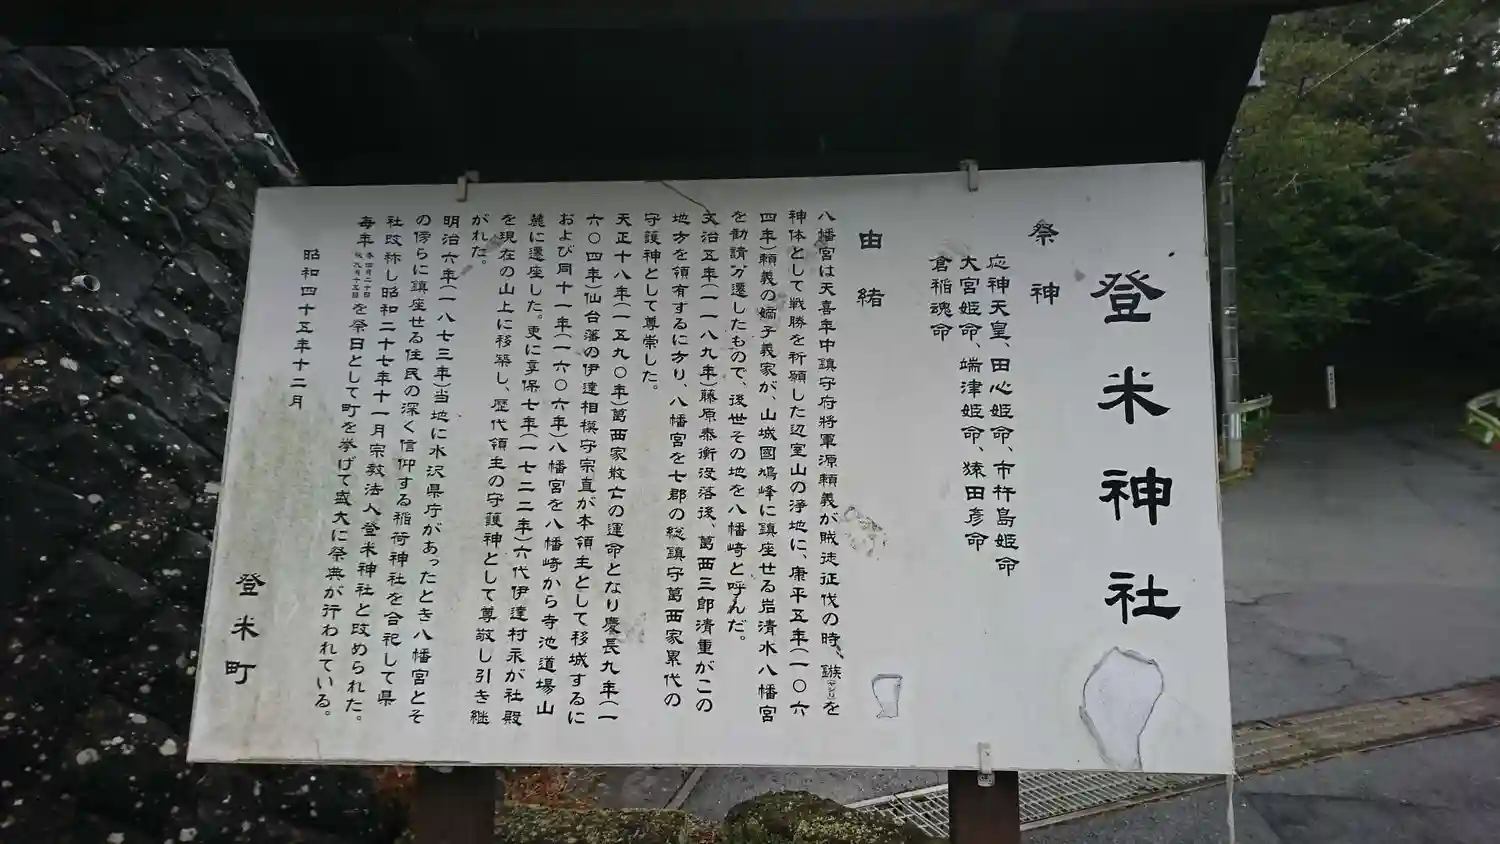 登米神社
祭神
応神天皇、田心姫命、市杵島姫命
大宮姫命、端津姫命、猿田彦命
倉稲魂命
由緒
八幡宮は天喜年中鎮守府将軍源頼義が賊徒征伐の時、鏃(ヤジリ)を
神体として戦勝を祈願した辺室山の浄地に、康平五年(一〇六
四年)頼義の嫡子義家が、山城國鳩峰に鎮座せる岩清水八幡宮
を勧請分遷したもので、後世その地を八幡崎と呼んだ。
文治五年(一一八九年)藤原泰衡没落後、葛西三郎清重がこの
地方を領有するに方り、八幡宮を七郡の総鎮守葛西家累代の
守護神として尊崇した。
天正十八年(一五九〇年)葛西家敗亡の運命となり慶長九年(一
六〇四年)仙台藩の伊達相模守宗直が本領主として移城するに
および同十一年(一六〇六年)八幡宮を八幡崎から寺池道場山
麓に遷座した。更に享保七年(一七二二年)六代伊達村永が社殿
を現在の山上に移築し、歴代領主の守護神として尊敬し引き継
がれた。
明治六年(一八七三年)当地に水沢県庁があったとき八幡宮とそ
の傍らに鎮座せる住民の深く信仰する稲荷神社を合祀して県
社改称し昭和二十七年十一月宗教法人登米神社と改められた。
毎年春四月二十日秋九月十五日を祭日として町を挙げて盛大に祭典が行われている。
昭和四十五年十二月
登米町